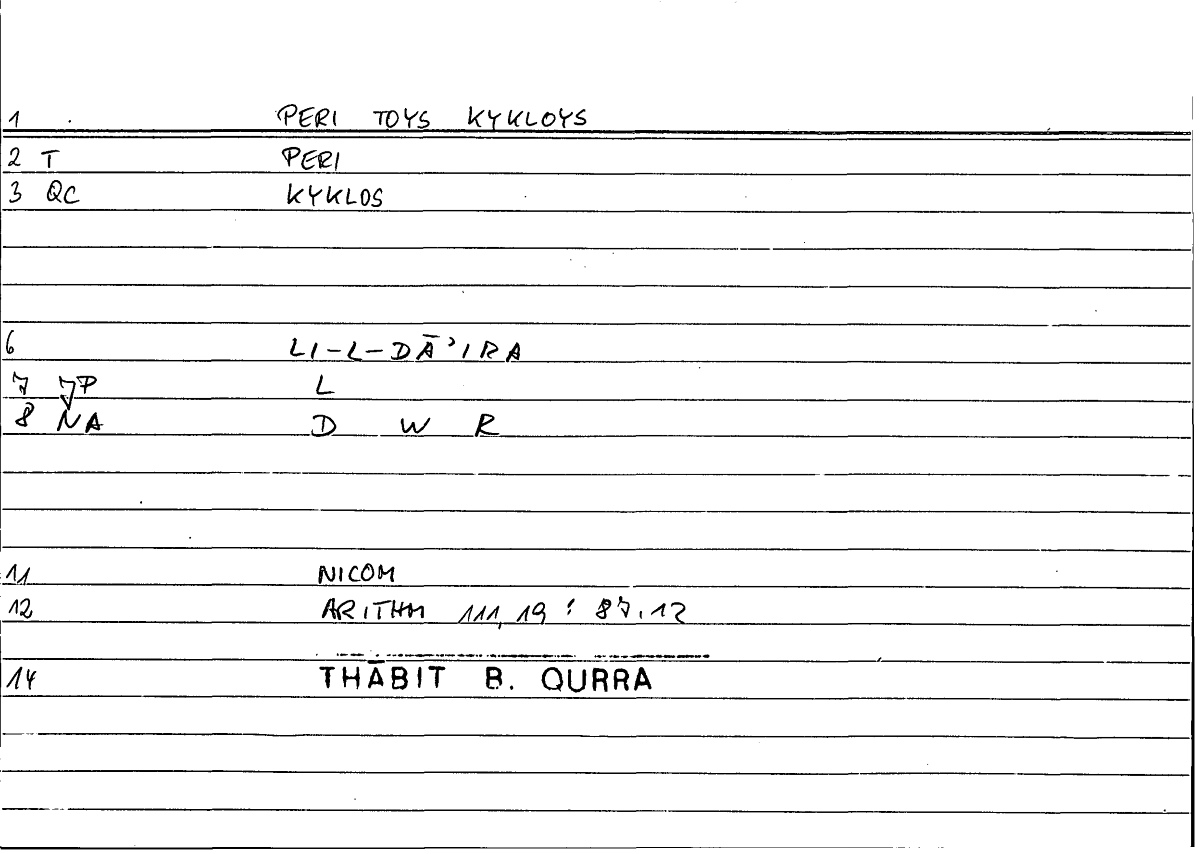 1 PERI TOYS KYKLOYS
2 T PERI
3 QC KYKLOS
6 LI-L-DĀʾIRA
7 JP L
8 NA D W R
11 NICOM
12 ARITHM 111,19 : 87.12
14 THĀBIT B. QURRA